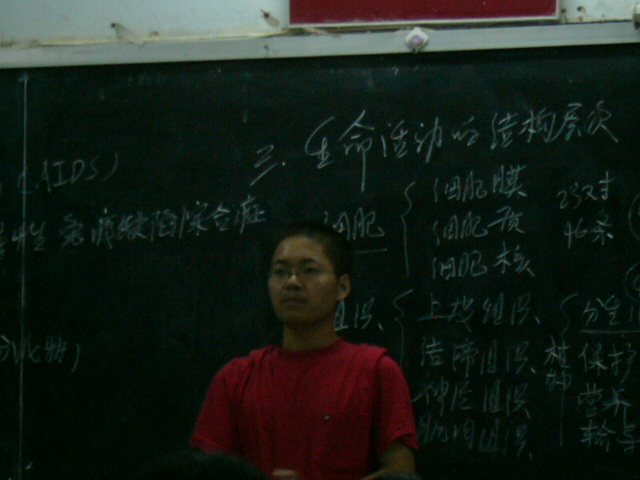 (AIDS)
性免疫缺陷综合症
三、生命活动的结构层次
细胞
细胞膜
细胞质
细胞核
23对
46条
组织、
上皮组织、
结缔组织、
神经组织
肌肉组织、
植物
分生
保护
营养
输导